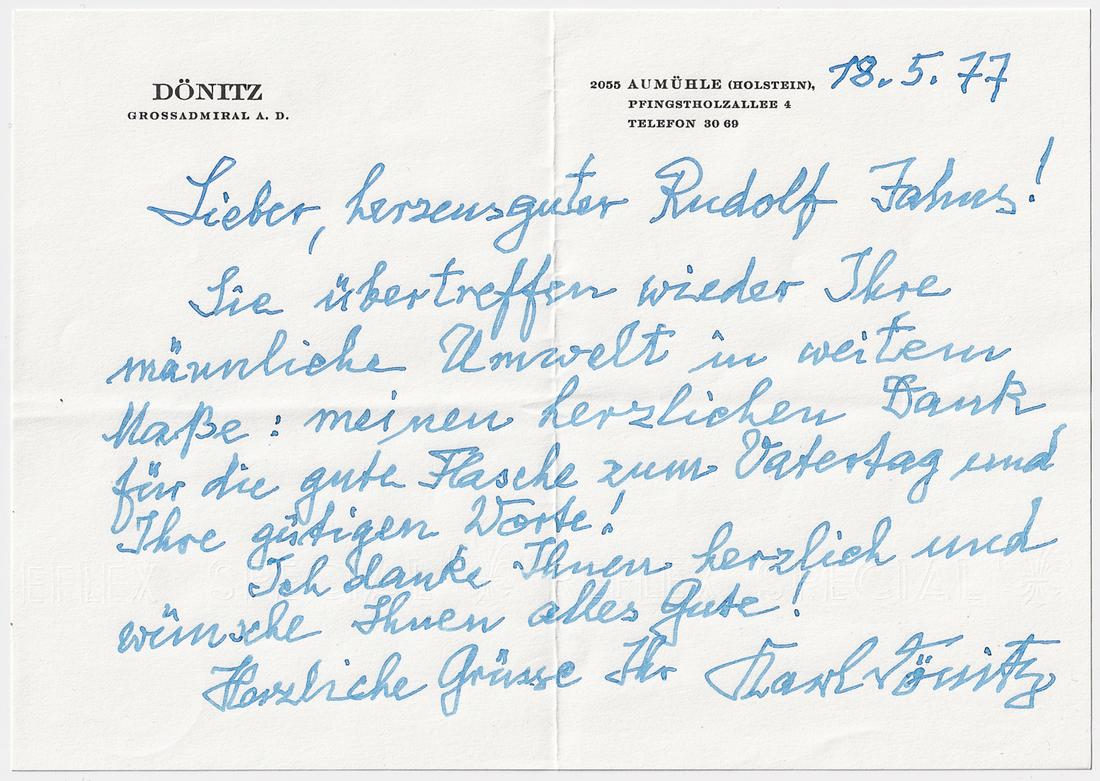 DÖNITZ
GROSSADMIRAL A. D.
2055 AUMÜHLE (HOLSTEIN), 18.5.77
PFINGSTHOLZALLEE 4
TELEFON 30 69
Lieber, herzensguter Rudolf Jahns!
Sie übertreffen wieder Ihre
männliche Umwelt in weitem
Maße: meinen herzlichen Dank
für die gute Flasche zum Vatertag und
Ihre gütigen Worte!
Ich danke Ihnen herzlich und
wünsche Ihnen alles Gute!
Herzliche Grüsse Ihr Karl Dönitz